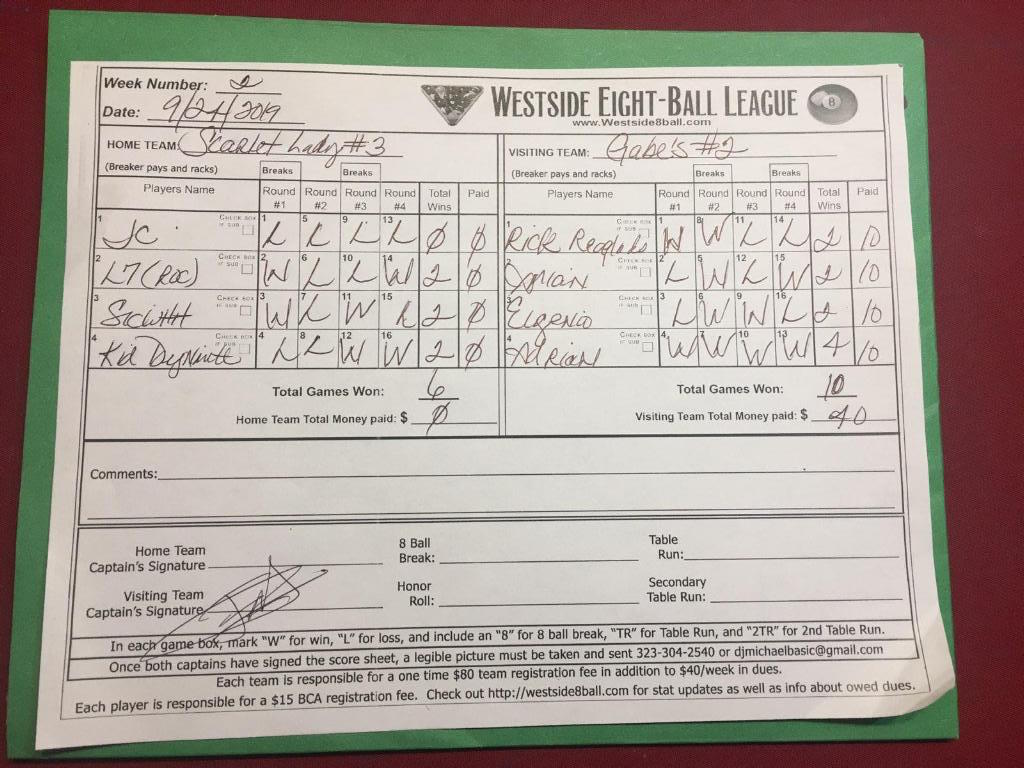 Week Number: 2
WESTSIDE EIGHT-BALL LEAGUE 8
www.Westside8ball.com
Date: 9/24/2019
HOME TEAM: Scarlet Lady #3 VISITING TEAM: Gabe's #2
(Breaker pays and racks) Breaks Breaks (Breaker pays and racks) Breaks Breaks
Players Name Round #1 Round #2 Round #3 Round #4 Total Wins Paid Players Name Round #1 Round #2 Round #3 Round #4 Total Wins Paid
1 JC CHECK BOX IF SUB 1 L 5 L 9 L 13 L 0 0 1 Rick CHECK BOX IF SUB 1 W 8 W 11 L 14 L 2 10
2 L7 (Roc) CHECK BOX IF SUB 2 W 6 L 10 L 14 W 2 0 2 CHECK BOX IF SUB 2 L 5 W 12 L 15 W 2 10
3 CHECK BOX IF SUB 3 W 7 L 11 W 15 L 2 0 3 Eugenio CHECK BOX IF SUB 3 L 6 W 9 W 16 L 2 10
4 Kid Dyninite CHECK BOX IF SUB 4 L 8 L 12 W 16 W 2 0 4 Adrian CHECK BOX IF SUB 4 W 7 W 10 W 13 W 4 10
Total Games Won: 6 Total Games Won: 10
Home Team Total Money paid: $ 0 Visiting Team Total Money paid: $ 40
Comments:
Home Team Captain's Signature 8 Ball Break: Table Run:
Visiting Team Captain's Signature Honor Roll: Secondary Table Run:
In each game box, mark "W" for win, "L" for loss, and include an "8" for 8 ball break, "TR" for Table Run, and "2TR" for 2nd Table Run.
Once both captains have signed the score sheet, a legible picture must be taken and sent 323-304-2540 or djmichaelbasic@gmail.com
Each team is responsible for a one time $80 team registration fee in addition to $40/week in dues.
Each player is responsible for a $15 BCA registration fee. Check out http://westside8ball.com for stat updates as well as info about owed dues.